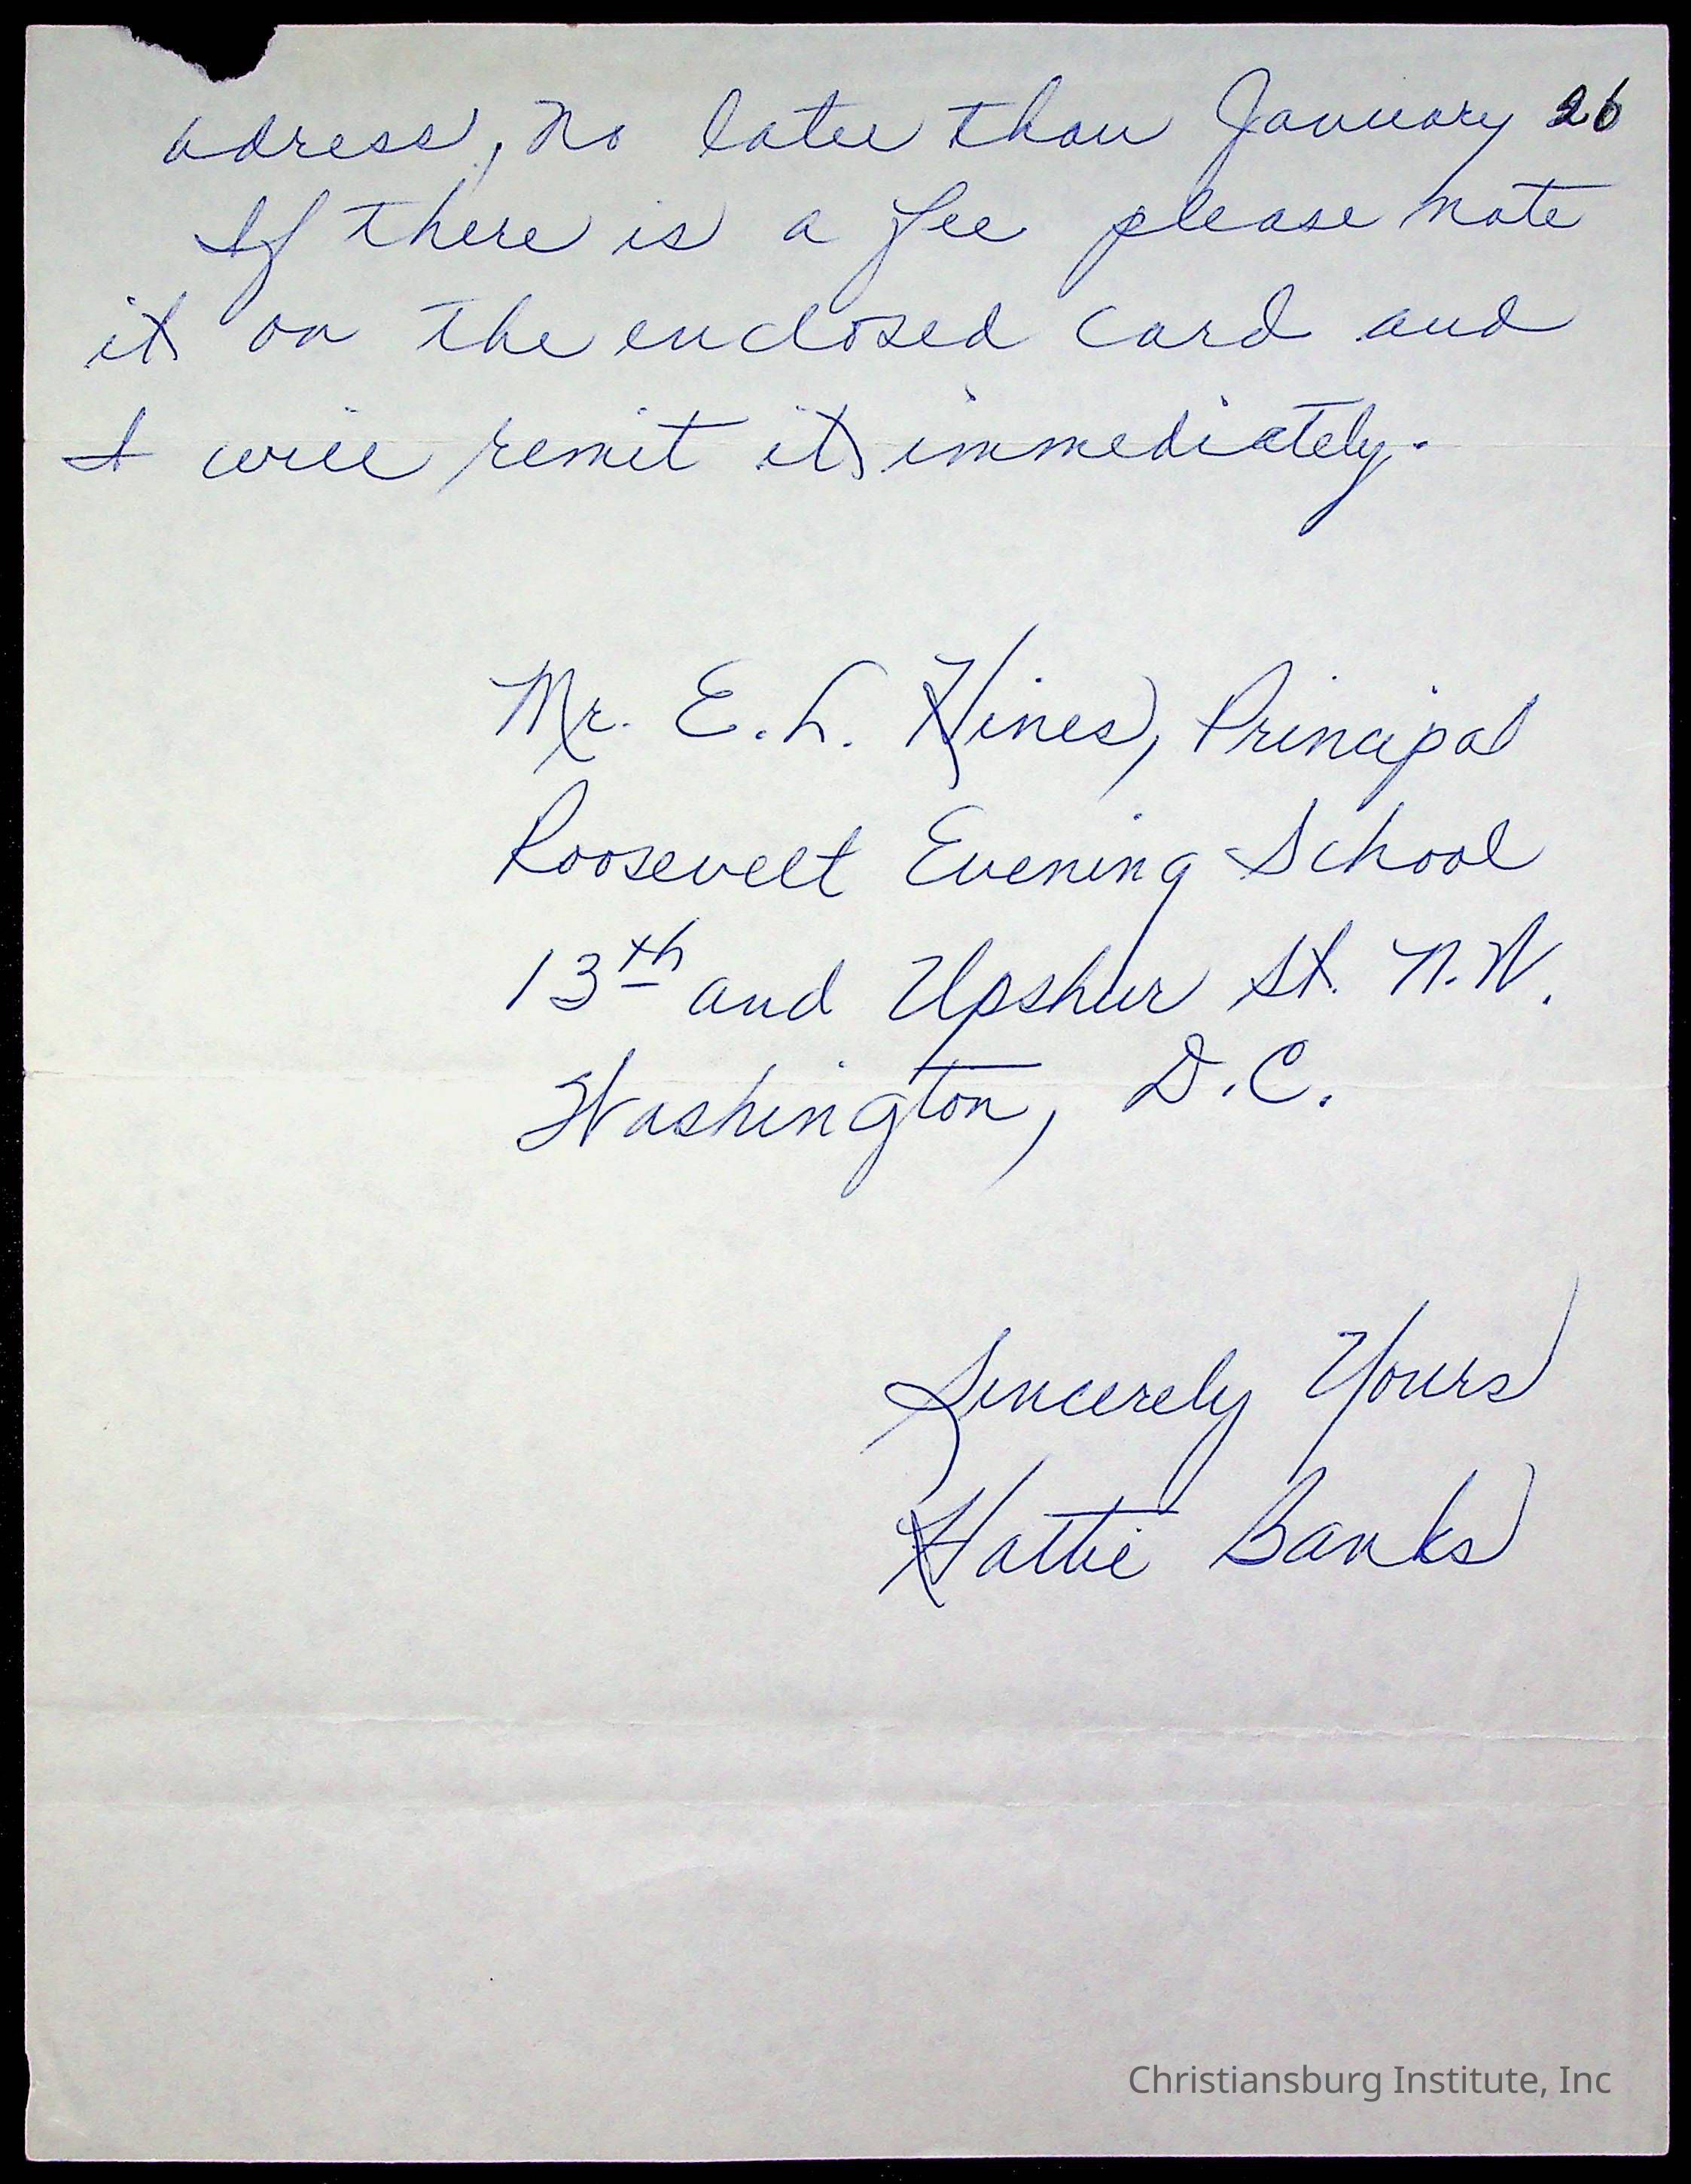 adress, no later than January 26
If there is a fee please note
it on the enclosed card and
I will remit it immediately.
Mr. E. L. Hines, Principal
Roosevelt Evening School
13th and Upshur St. N.W.
Washington, D.C.
Sincerely Yours
Hattie Banks
Christiansburg Institute, Inc